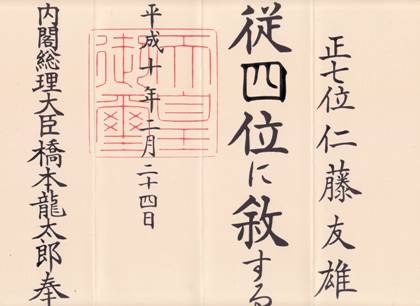 正七位仁藤友雄
従四位に敘する
天皇御璽
平成十年二月二十四日
内閣総理大臣橋本龍太郎奉